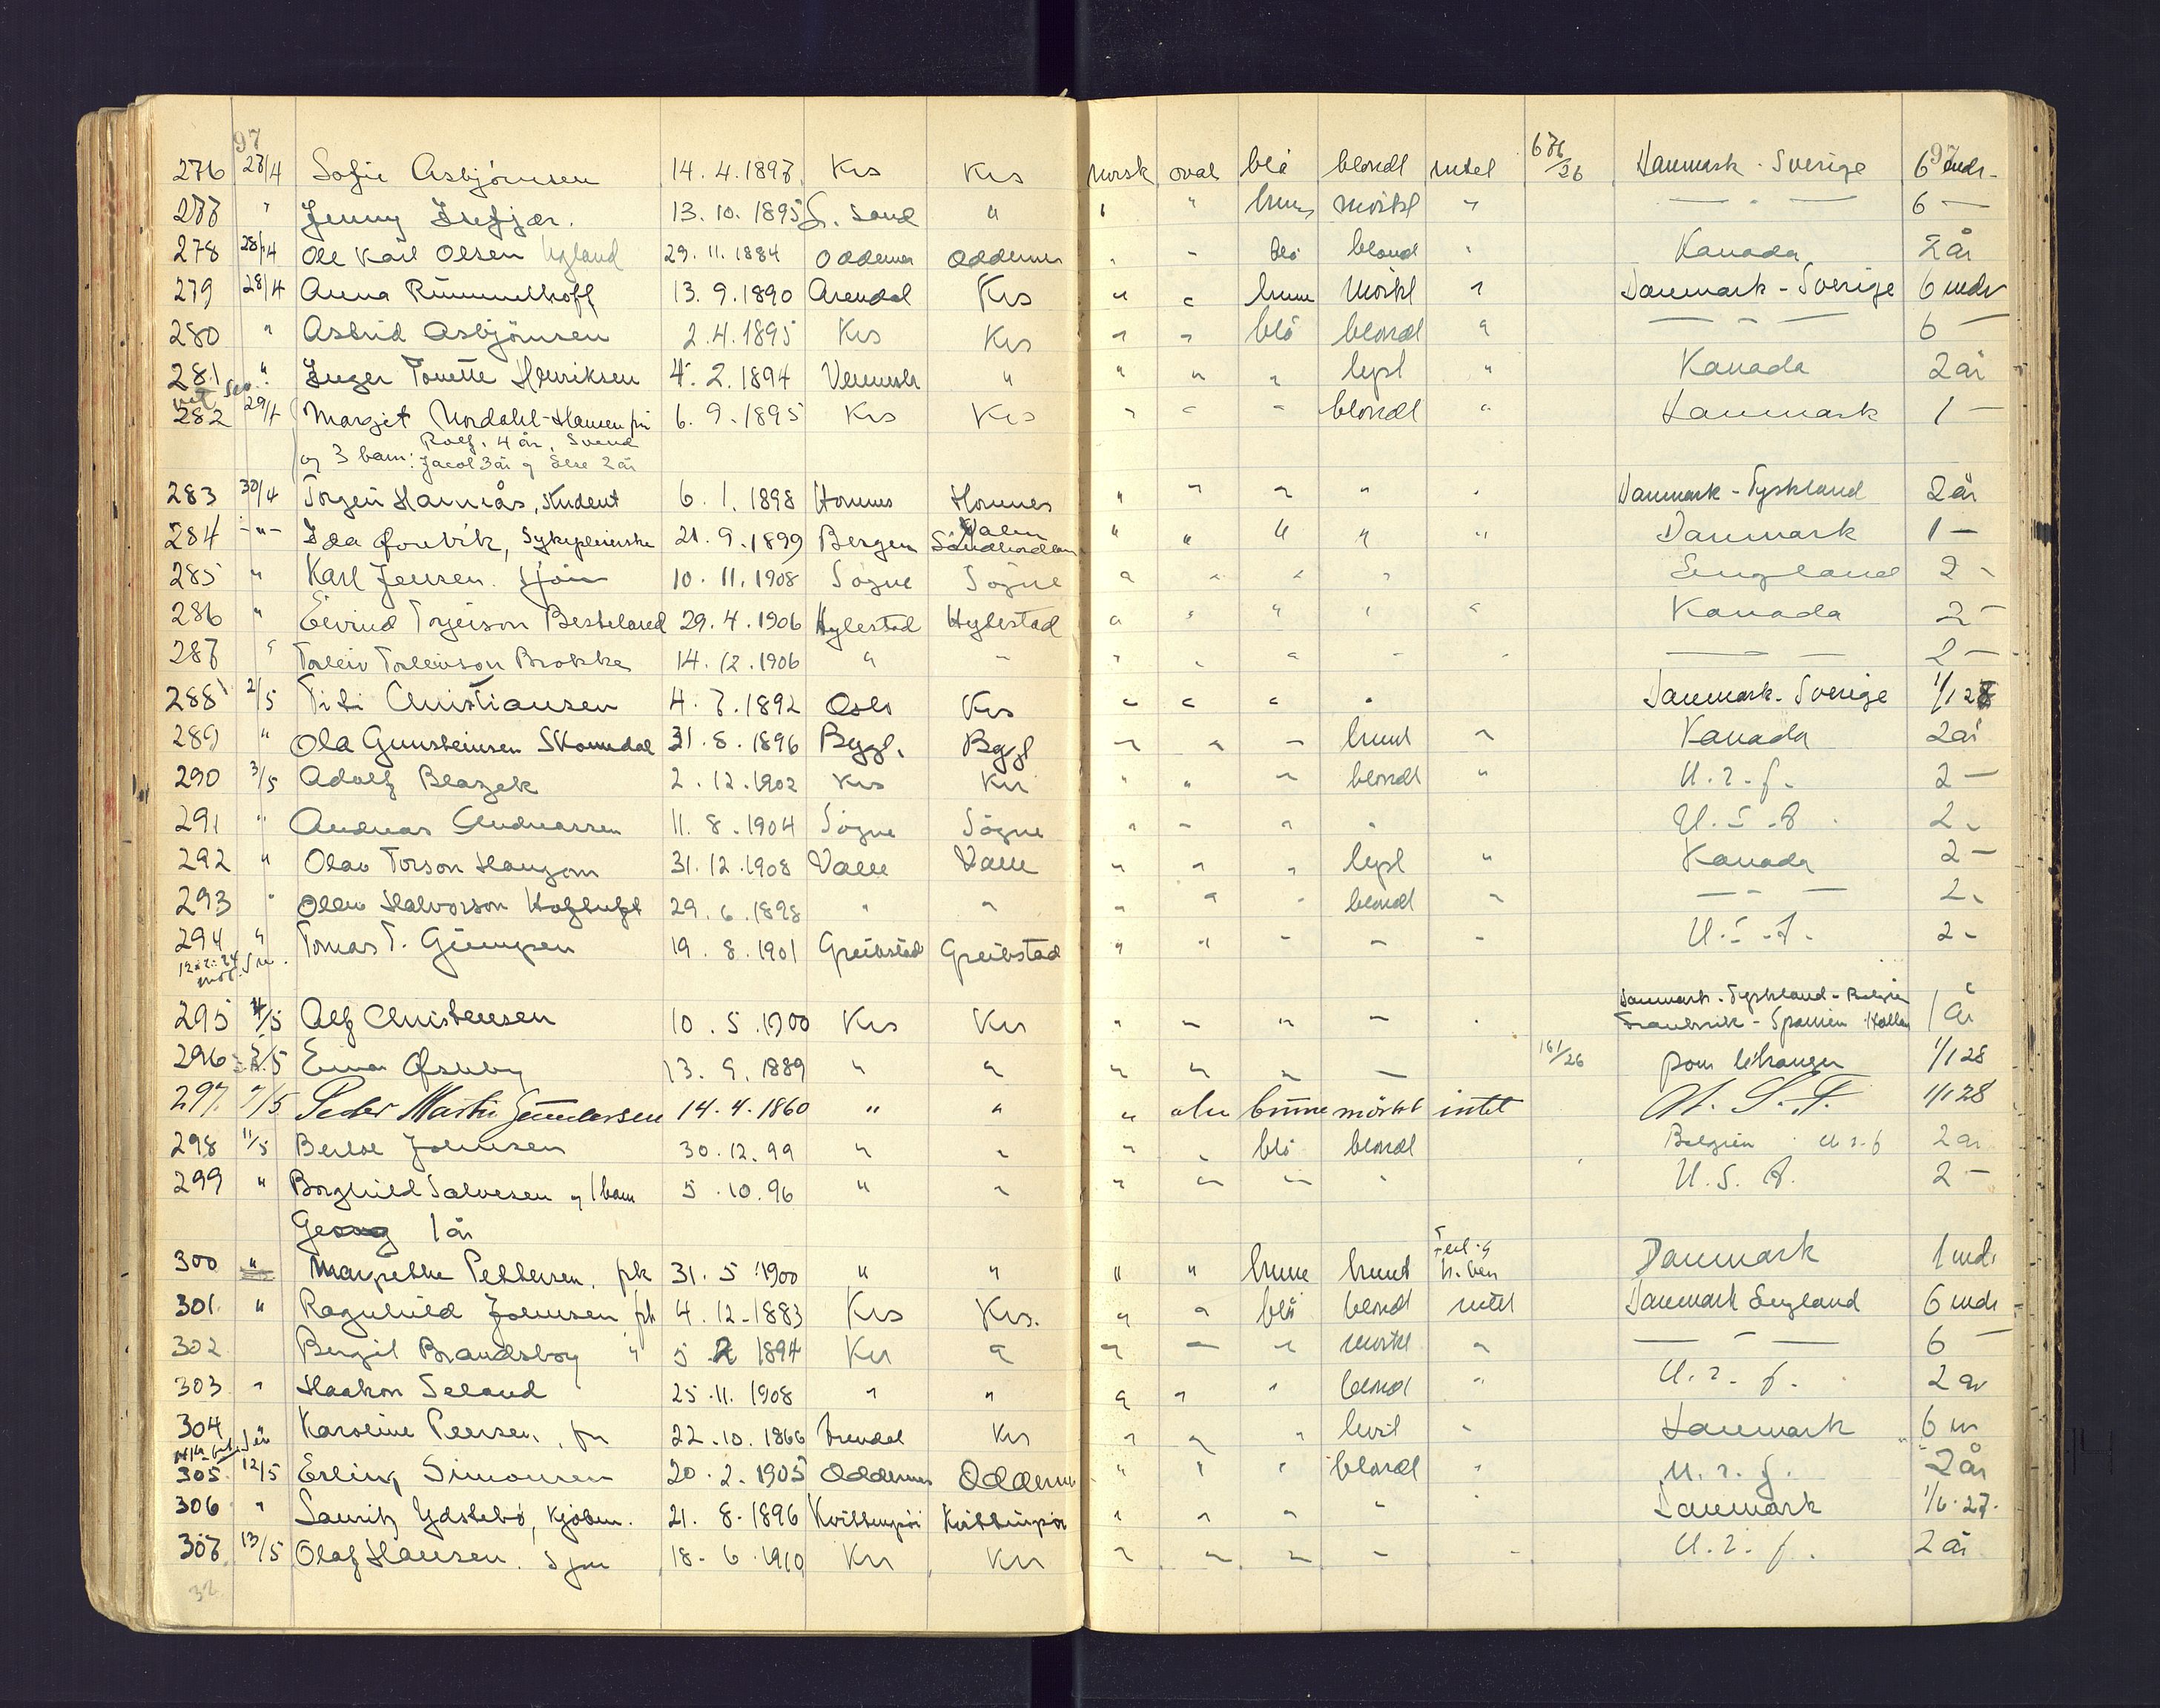 97 97
276 27/4 Sofie Asbjörnsen 14.4.1897 Krs Krs norsk oval blå blondt intet 676/26 Danmark - Sverige 6 mdr.
277 " Jenny 13.10.1895 S. Sand " " " brune mörkt " — " — 6 —
278 28/4 Ole Karl Olsen Ugland 29.11.1884 Oddernes Oddernes " " blå blond " Kanada 2 år
279 28/4 Anna Rummelhoff 13.9.1890 Arendal Krs " " brune mörkt " Danmark - Sverige 6 mdr
280 " Astrid Asbjörnsen 2.4.1895 Krs Krs " " blå blondt " — " — 6 —
281 " Inger Tonette Henriksen 4.2.1894 " " " " lyst " Kanada 2 år
282 29/4 Margit Nordahl-Hansen fru 6.9.1895 Krs Krs " " " blondt " Danmark 1 —
og 3 barn: Rolf, 4 år, Svend
Jacob 3 år og Else 2 år
283 30/4 Torgeir Hannås, student 6.1.1898 Hornnes Hornnes " " " " " Danmark - Tyskland 2 år
284 -"- Ida, Sykepleierske 21.9.1899 Bergen Valen Söndhordland " " " " " Danmark 1 —
285 " Karl Jensen. sjöm 10.11.1908 Sögne Sögne " " " " England 2 -
286 " Eivind Torjeison Besteland 29.4.1906 Hylestad Hylestad " " " " " Kanada 2 -
287 " Torleiv Torleivson Brokke 14.12.1906 " " " " " " " — " — 2 —
288 2/5 Titi Christiansen 4.7.1892 Oslo Krs " " " " Danmark - Sverige 1/1 28
289 " Ola Gunsteinsen Skomedal 31.8.1896 Bygl. Bygl " " " brunt " Kanada 2 år
290 3/5 Adolf Blazek 2.12.1902 Krs Krs " " " blondt " U.s.f. 2 —
291 " Andreas Andreassen 11.8.1904 Sögne Sögne " " " " U.S.A. 2 -
292 " Olav Torson Haugom 31.12.1908 Valle Valle " " " lyst " Kanada 2 —
293 " Halvorson 29.6.1898 " " " " " blondt " — " — 2 -
294 " Tomas T. 19.8.1901 Greibstad Greibstad " " " " " U.S.A. 2 -
295 4/5 Alf Christensen 10.5.1900 Krs Krs " " " " " Danmark - Tyskland - Belgien
Frankrik - Spanien Holland 1 år
296 5/5 13.9.1889 " " " " " " 161/26 pour l'étranger 1/1 28
297 7/5 Peder Martin Gundersen 14.4.1860 " " " brune mörkt intet 1/1 28
298 11/5 Johnsen 30.12.99 " " " " blå blondt Belgien u.s.f 2 år
299 " Borghild Salvesen og 1 barn 5.10.96 " " " " " " U.S.A. 2 -
Georg 1 år
300 " Margrethe Pettersen, frk 31.5.1900 " " " " brune brunt Feil i h. ben Danmark 1 md.
301 " Ragnhild Johnsen frk 4.12.1883 Krs Krs. " " blå blondt intet Danmark England 6 mdr
302 Bergit " 5.2 1894 Krs " " " " mörkt " — " — 6 —
303 " Haakon Seland 25.11.1908 " " " " " blond " U.s.f. 2 år
304 " Karoline Peersen, fru 22.10.1866 Arendal Krs " " " hvit " Danmark 6 m
305 12/5 Erling Simonsen 20.2.1905 Oddernes Oddernes " " " blondt " U.s.f. 2 år
306 " Lauritz Ydstebö, Kjöbm. 21.8.1896 Kvittingsöi Kvittingsöi " " " " " Danmark 1/6.27.
307 13/5 Olaf Hansen. sjm 18.6.1910 Krs Krs " " " " " U.s.f. 2 år
32